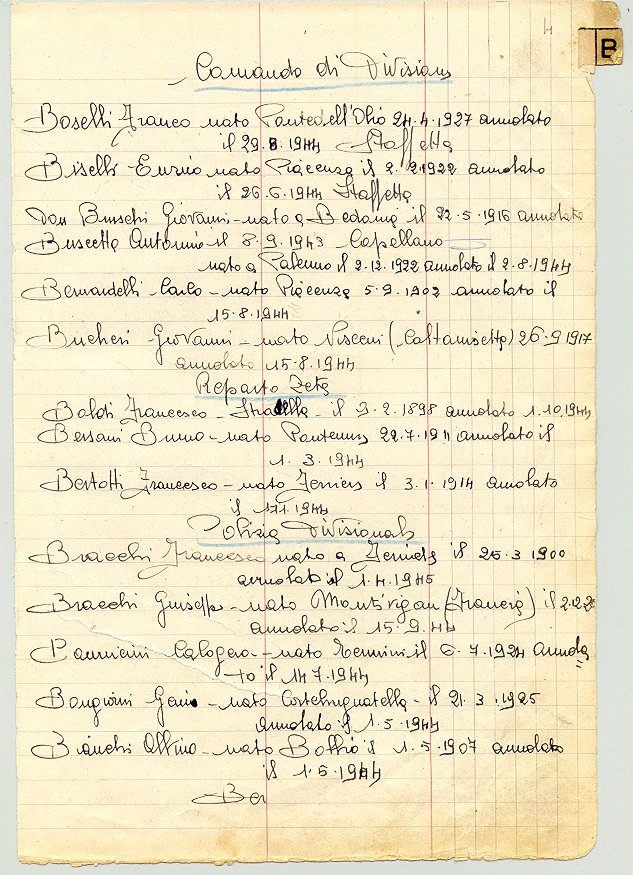 4
B
Comando di Divisione
Boselli Franco nato Pontedell'Olio 24.4.1927 arruolato
il 29.8.1944 Staffetta
Biselli Enzio nato Piacenza il 2.2.1922 arruolato
il 26.6.1944 Staffetta
Don Bruschi Giovanni - nato a Bedonia il 22.5.1916 arruolato
Buscetta Antonino il 8.9.1943 - Capellano
nato a Palermo il 2.12.1922 arruolato il 2.8.1944
Bernardelli Carlo - nato Piacenza 5.9.1902 arruolato il
15.8.1944
Bucheri Giovanni - nato Nisceni (Caltanisetta) 26.9.1917
arruolato 15.8.1944
Reparto Zeta
Baldi Francesco - Stradella - il 3.2.1898 arruolato 1.10.1944
Bersani Bruno - nato Pontenure 22.7.1911 arruolato il
1.3.1944
Bertotti Francesco - nato Ferriere il 3.1.1914 arruolato
il 1944
Polizia Divisionale
Bracchi Francesco nato a Ferriere il 1900
arruolato il 1.4.1945
Bracchi Giuseppe - nato (Francia) il
arruolato il 15.9.44
Calogero - nato il 6.7.1924 arruola
to il 14.7.1944
Bongiorni - nato Cortebrugnatella - il 21.3.1925
arruolato il 1.5.1944
Bianchi - nato Bobbio il 1.5.1907 arruolato
il 1.5.1944
Ber